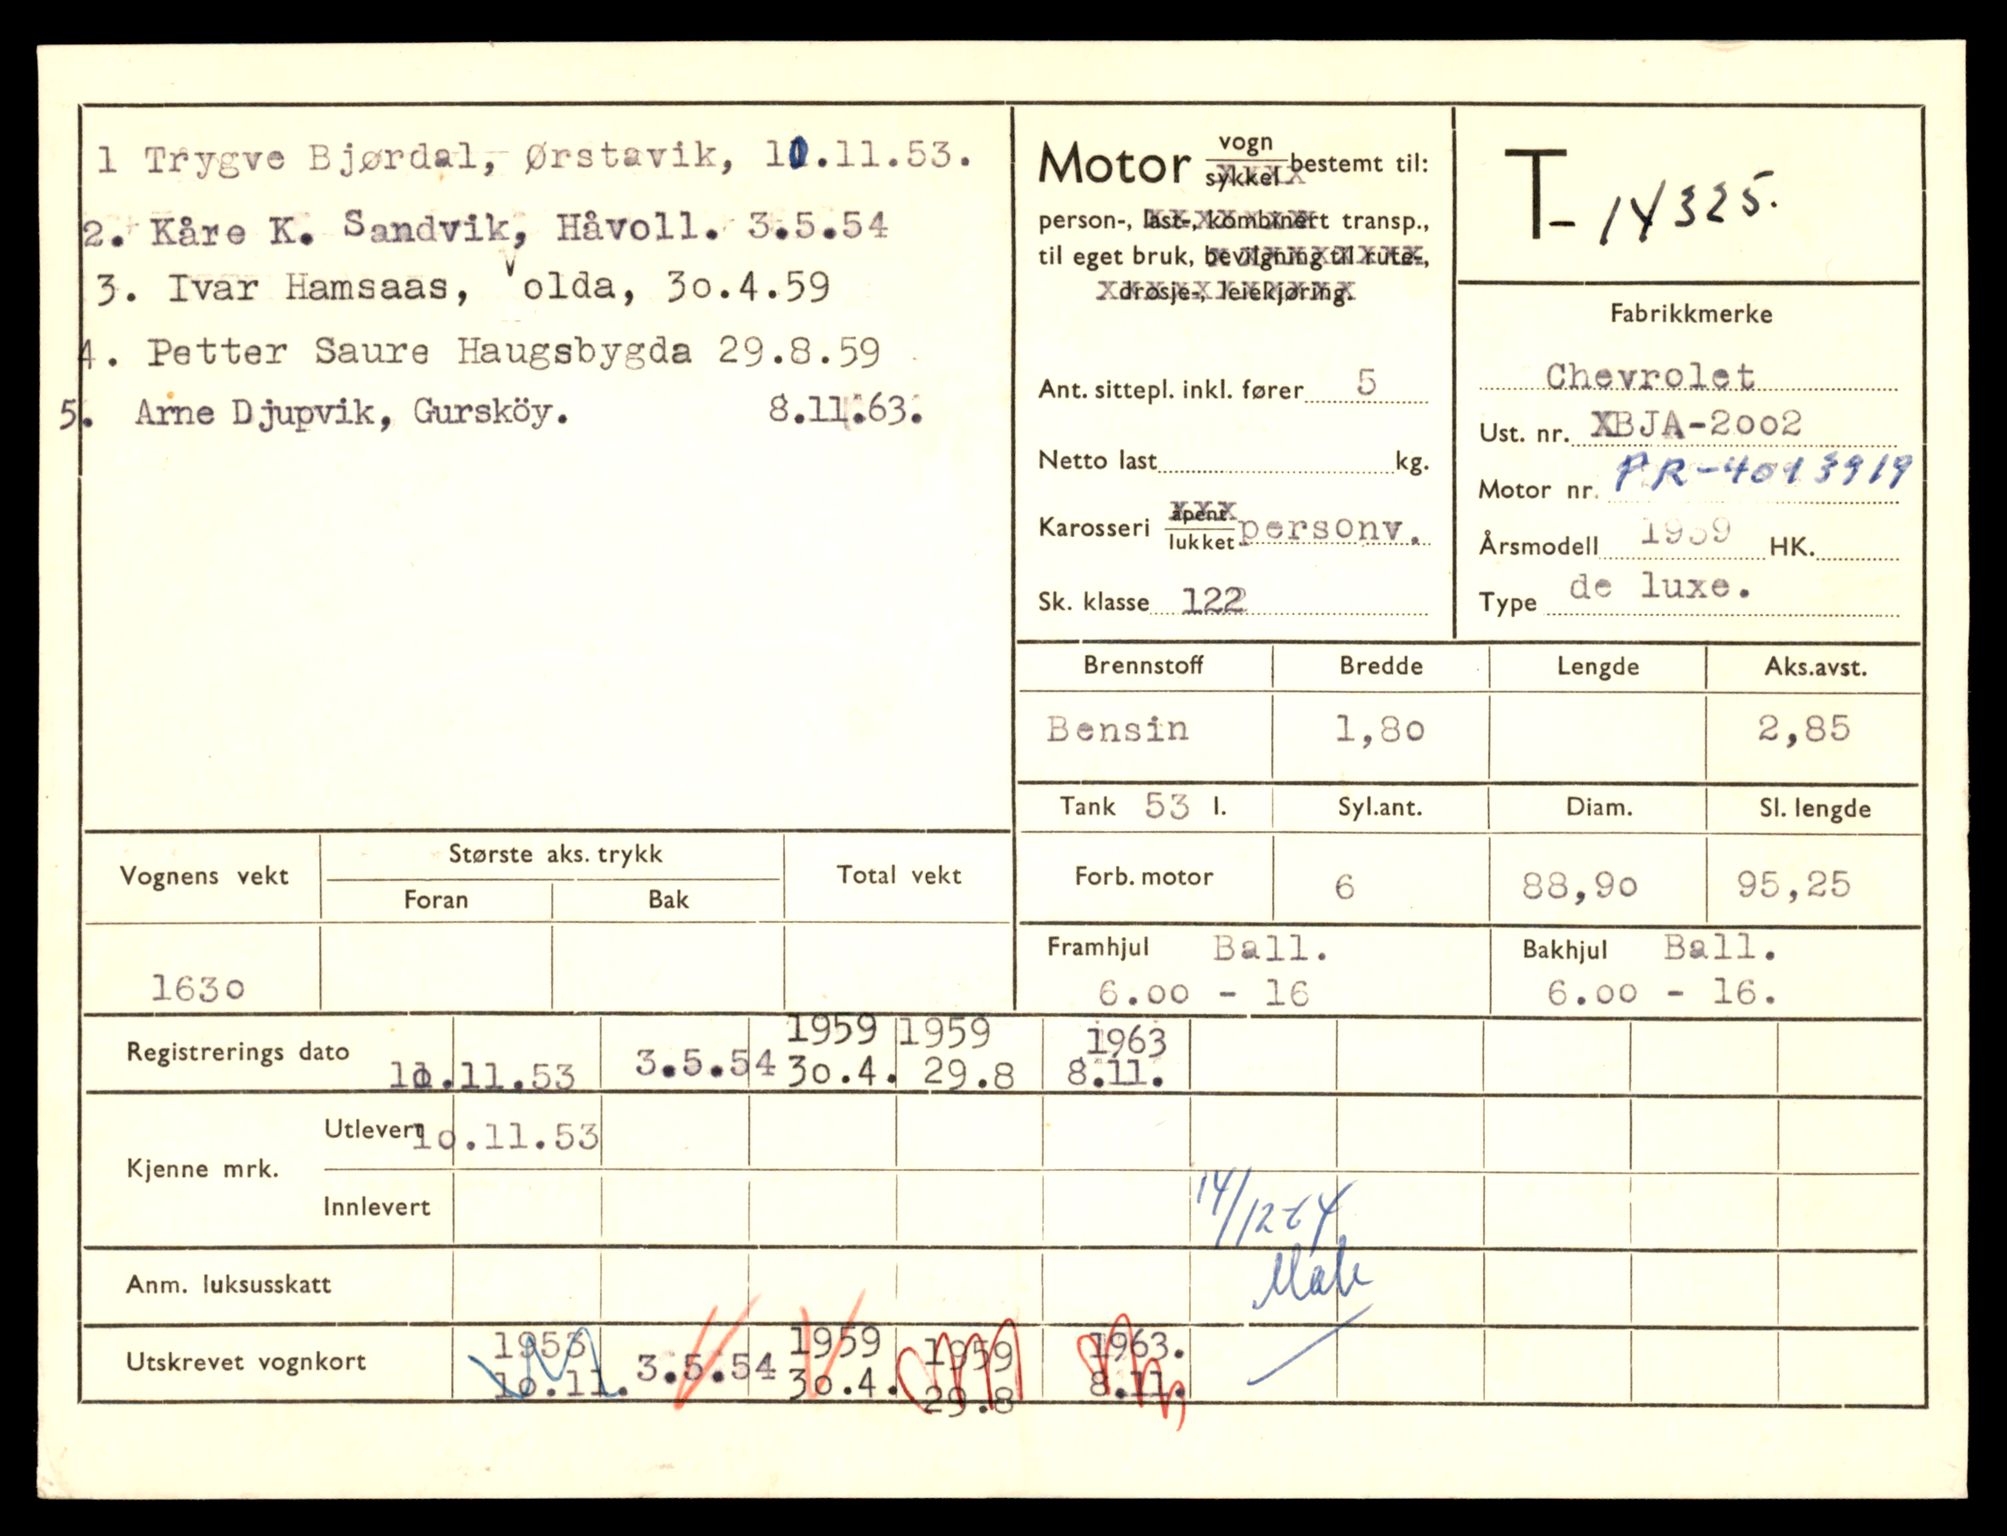 1 Trygve Bjørdal, Ørstavik, 10.11.53.
2. Kåre K. Sandvik, Håvoll. 3.5.54
3. Ivar Hamsaas, Volda, 30.4.59
4. Petter Saure Haugsbygda 29.8.59
5. Arne Djupvik, Gursköy. 8.11.63.
Motor vogn sykkel bestemt til:
person-, last-, kombinert transp.,
til eget bruk, bevilgning til rute-,
drosje-, leiekjøring.
Ant. sittepl. inkl. fører 5
Netto last kg.
Karosseri åpent lukket personv.
Sk. klasse 122
T-14325.
Fabrikkmerke
Chevrolet
Ust. nr. XBJA-2002
Motor nr. PR-4013919
Årsmodell 1939 HK.
Type de luxe.
Brennstoff Bredde Lengde Aks.avst.
Bensin 1,80 2,85
Tank 53 l. Syl.ant. Diam. Sl. lengde
Forb. motor 6 88,90 95,25
Framhjul Ball. Bakhjul Ball.
6.00 - 16 6.00 - 16.
Vognens vekt Største aks. trykk Total vekt
Foran Bak
1630
1959 1959 1963
Registrerings dato 10.11.53 3.5.54 30.4. 29.8 8.11.
Utlevert 10.11.53
Kjenne mrk.
Innlevert 14/12-64
Anm. luksusskatt
1953 1959 1959 1963.
Utskrevet vognkort 10.11. 3.5.54 30.4. 29.8 8.11.